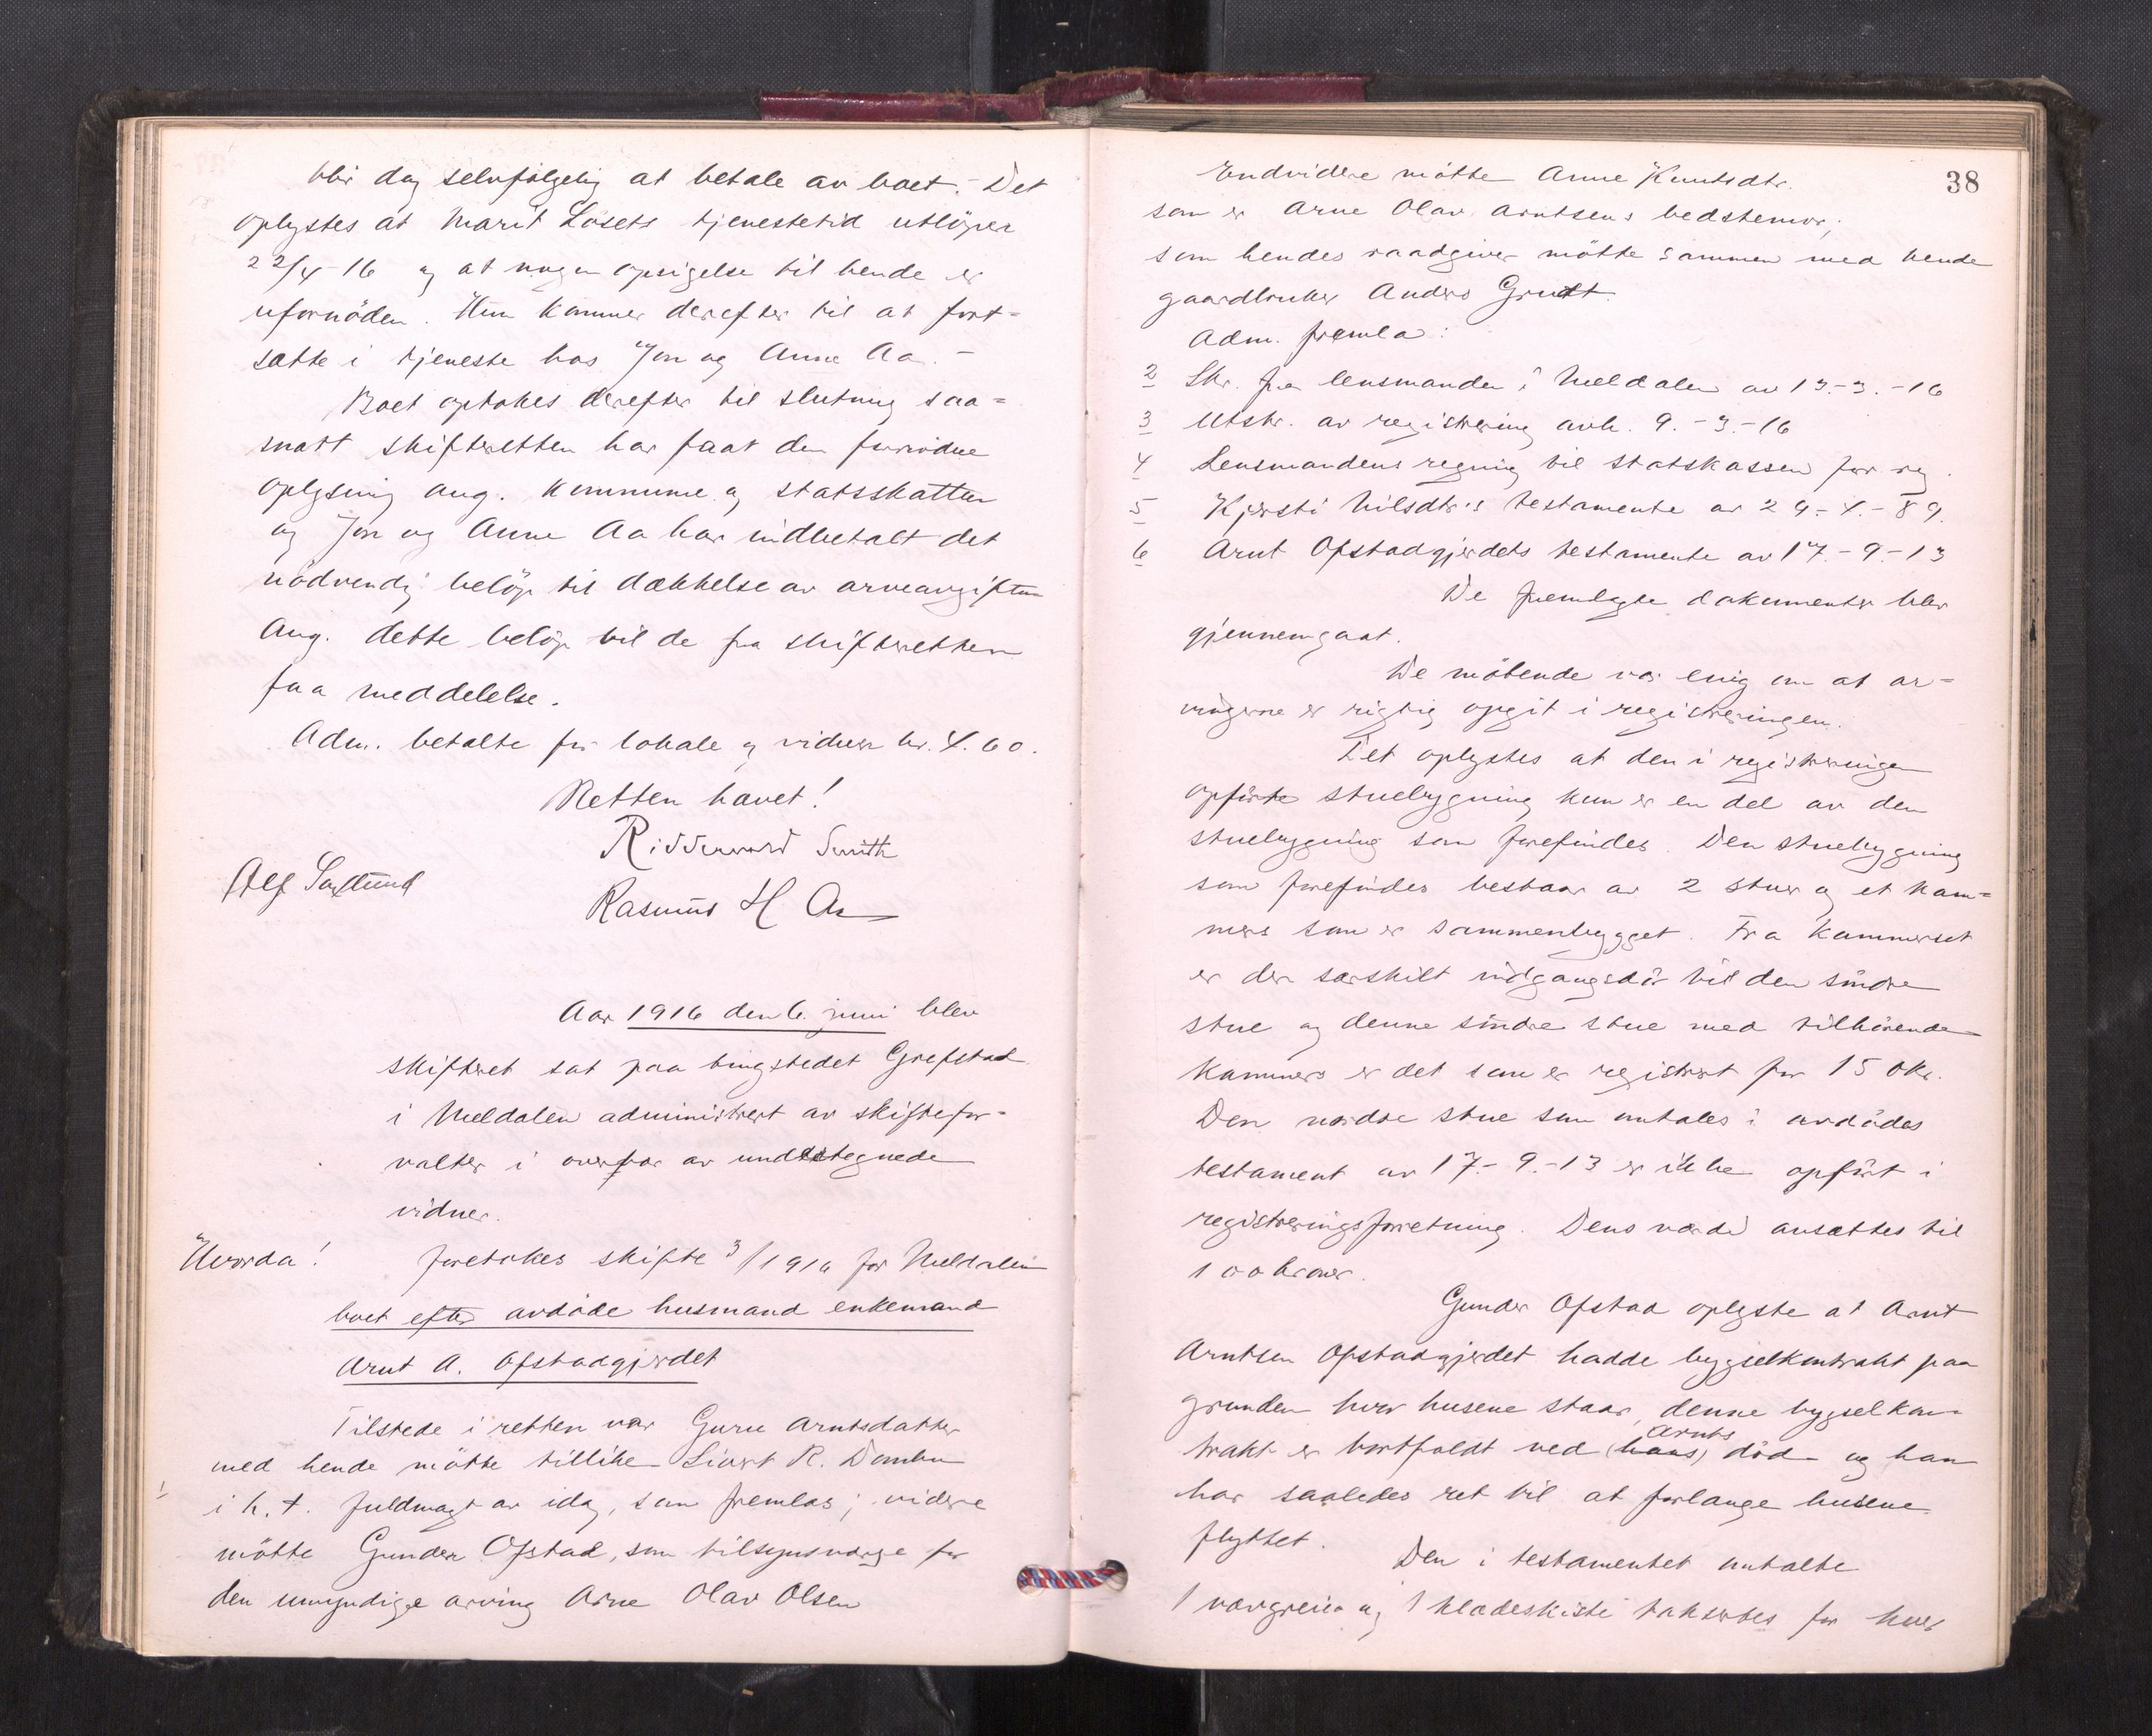 blir dog selvfølgelig at betale av boet. - Det
oplystes at Marit Løsets tjenestetid utløper
22/4-16 og at nogen opsigelse til hende er
ufornöden. Hun kommer derefter til at fort-
sætte i tjeneste hos Jon og Anne Aa. -
Boet optokes derefter til slutning saa-
snart skifteretten har faat den fornødne
oplysning ang. kommune og statsskatten
og Jon og Anne Aa har indbetalt det
nödvendig belöp til dækkelse av arveavgiften
Ang. dette belöp vil de fra skifteretten
faa meddelelse.
Adm. betalte for lokale og vidner kr. 4.60.
Retten hævet!
Ridderword Smith
Alf
Rasmus H Aa
Aar 1916 den 6. juni blev
skifteret sat paa tingstedet Grefstad
i Meldalen administrert av skiftefor-
valter i overvær av undertegnede
vidner.
Hvorda!
Foretokes skifte 3/1916 for Meldalen
boet efter avdøde husmand enkemand
Arnt A. Ofstadgjerdet
Tilstede i retten var Guru Arntsdatter
med hende mötte tillike Sivert R. Dombu
1
i h. t. fuldmagt av idag, som fremlas; videre
mötte Gunder Ofstad, som tilsynsværge for
den umyndige arving Arne Olav Olsen
38
Endvidere mötte Anne Knutsdtr.
som er Arne Olav Arntsens bedstemor;
som hendes raadgiver mötte sammen med hende
gaardbruker Anders Grudt.
Adm. fremla:
2 Skr. fra lensmanden i Meldalen av 13.-3.-16
3 Utskr. av registrering avh. 9.-3.-16
4 Lensmandens regning til statskassen for reg.
5 Kjersti Nilsdtr's testamente av 29.-4.-89.
6 Arnt Ofstadgjerdets testamente av 17.-9.-13
De fremlagte dokumenter blev
gjennemgaat.
De mötende var enig om at ar-
vingerne er rigtig opgit i registreringen.
Det oplystes at den i registreringen
opförte stuebygning kun er en del av den
stuebygning som forefindes. Den stuebygning
som forefindes bestaar av 2 stuer og et kam-
mers som er sammenbygget. Fra kammerset
er der særskilt indgangsdör til den söndre
stue og denne söndre stue med tilhörende
kammers er det som er registrert for 150 kr.
Den nordre stue som omtales i avdødes
testament av 17.-9.-13 er ikke opfört i
registreringsforretning. Dens værdi ansættes til
100 kroner.
Gunder Ofstad oplyste at Arnt
Arntsen Ofstadgjerdet hadde bygselkontrakt paa
grunden hvor husene staar, denne bygselkon-
trakt er bortfaldt ved (hans) Arnts död og han
har saaledes ret til at forlange husene
flyttet. Den i testamentet omtalte
1 vævgreie og 1 klædeskiste taksertes for hver